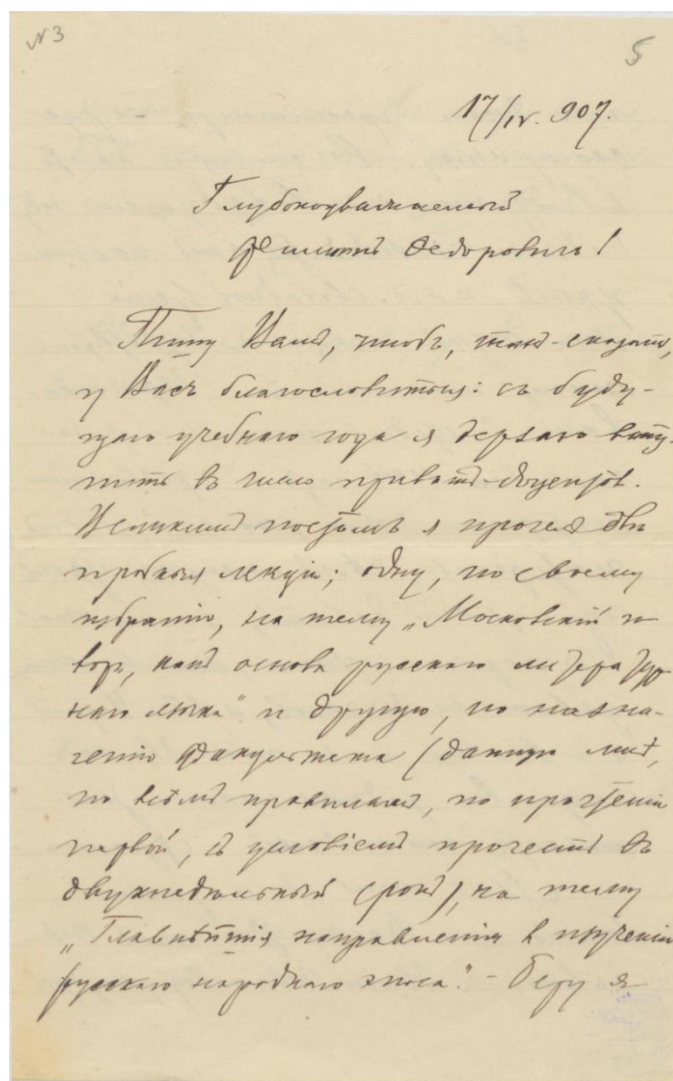 № 3
5
17/IV. 907.
Глубокоуважаемый
Филиппъ Федоровичъ!
Пишу Вамъ, чтобъ, такъ-сказать,
у Васъ благословиться: съ буду-
щаго учебнаго года я дерзаю всту-
пить въ число приватъ-доцентов.
Великимъ постомъ я прочелъ двѣ
пробныя лекціи; одну, по своему
избранію, на тему „Московскій го-
воръ, какъ основа русскаго литератур-
наго языка" и другую, по назна-
ченію факультета (данную мнѣ,
по всѣмъ правиламъ, по прочтеніи
первой, съ условіемъ прочесть въ
двухнедѣльный срокъ), на тему
„Главнѣйшія направленія в изученіи
русскаго народнаго эпоса." – Беру я